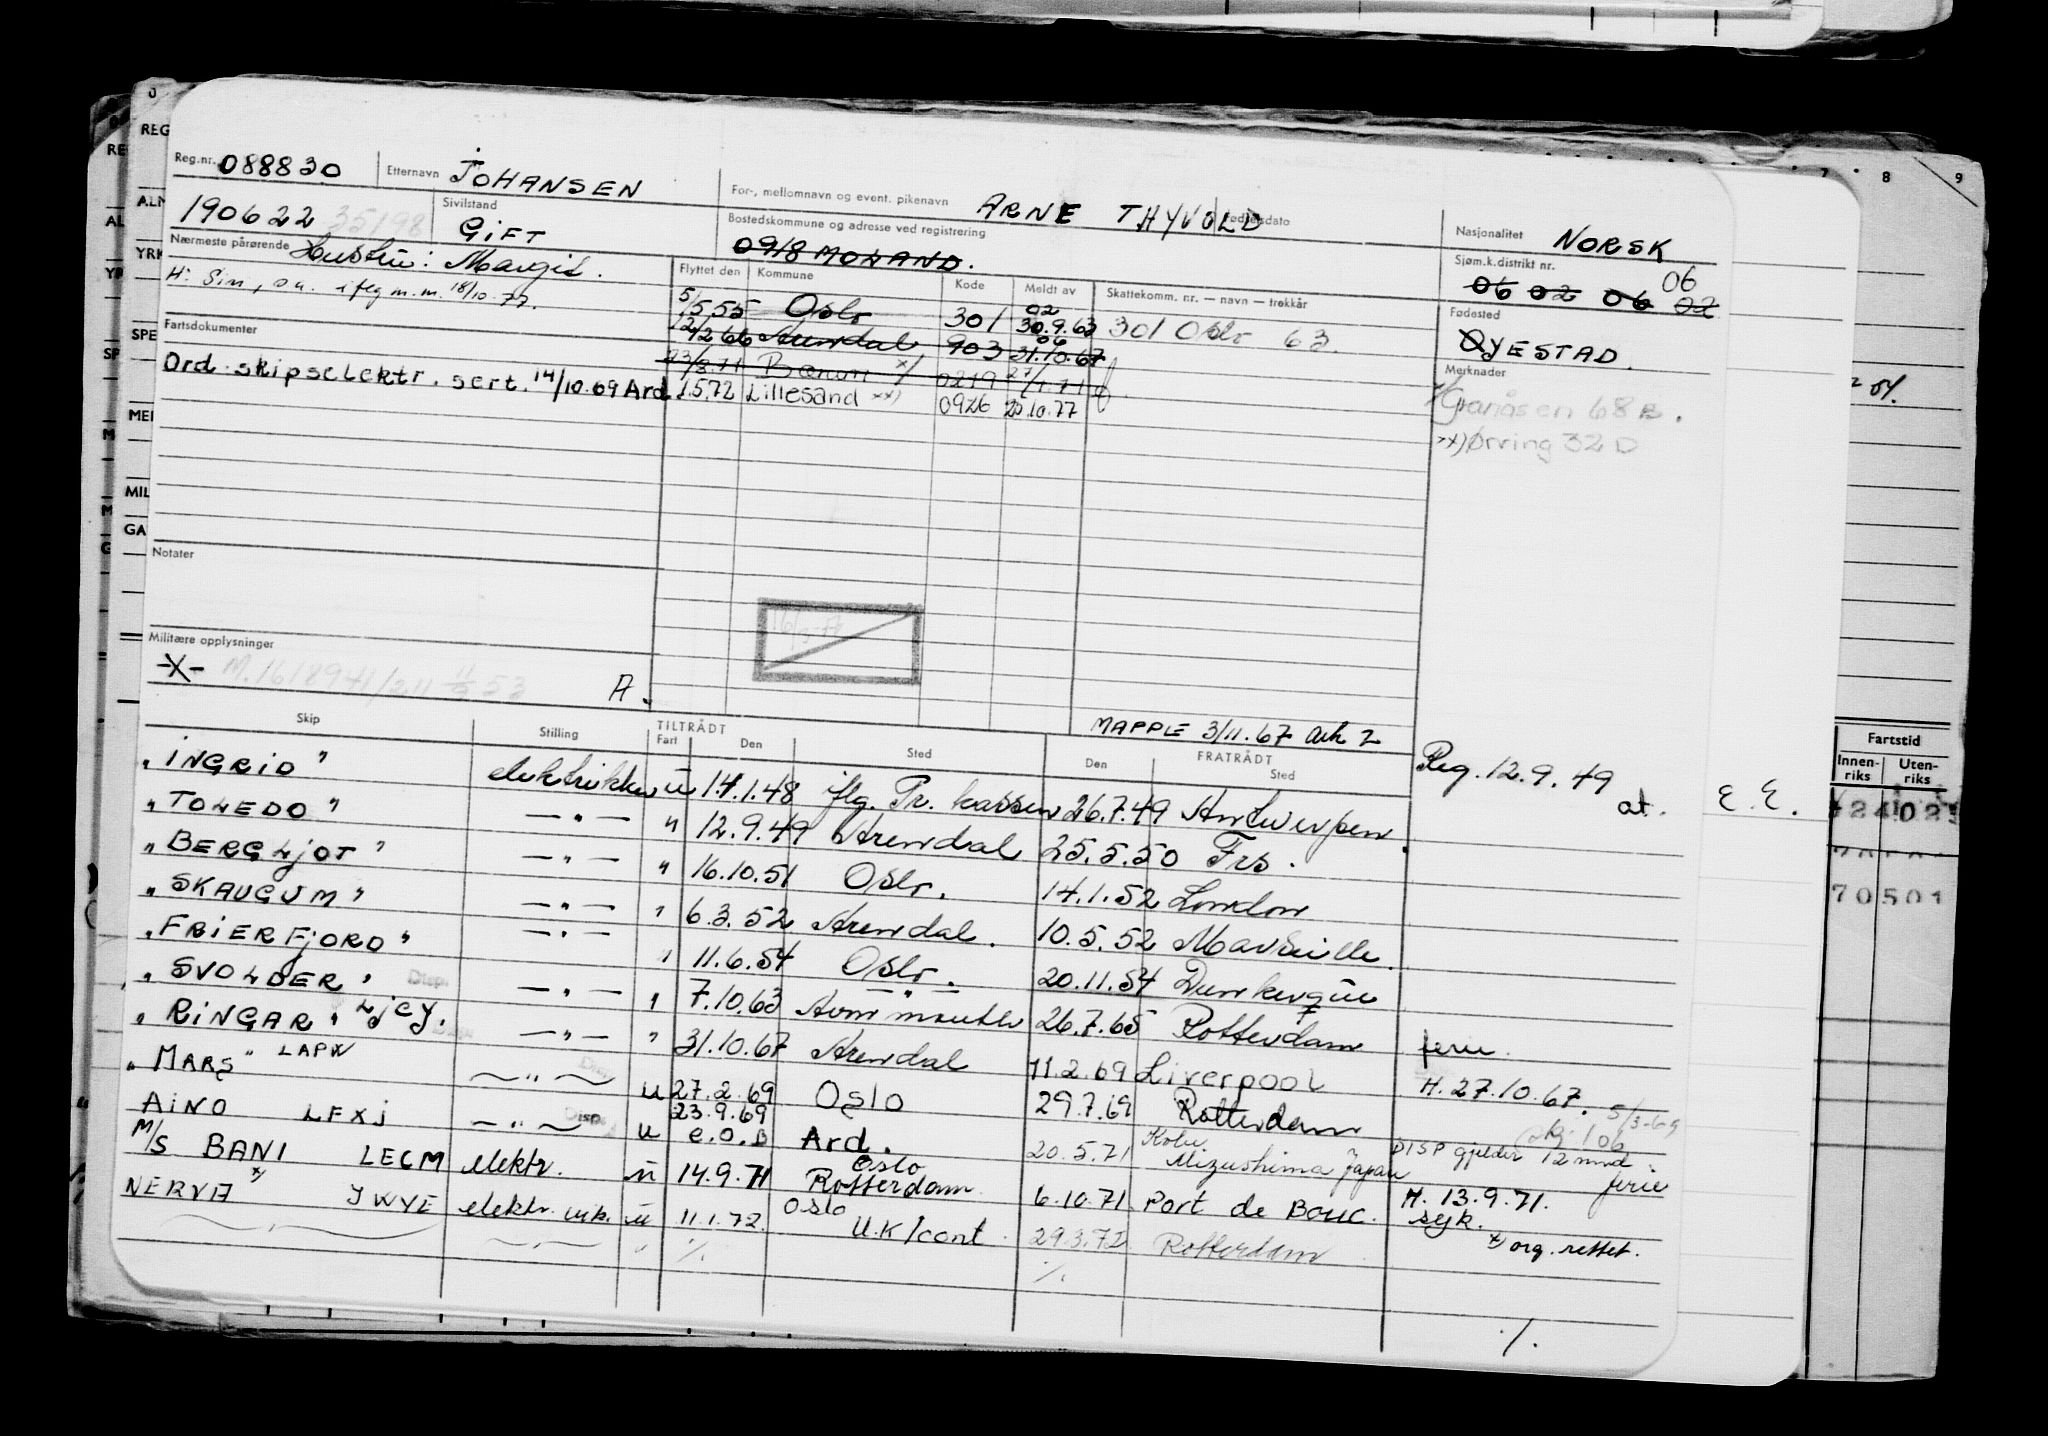 Reg.nr. 088830 Etternavn JOHANSEN For-, mellomnavn og event. pikenavn ARNE THYVOLD Nasjonalitet NORSK
190622 35198 Sivilstand GIFT Bostedskommune og adresse ved registrering 0918 MOLAND. Sjøm.k.distrikt nr. 06 02 06 02 06
Nærmeste pårørende Hustru: Margit.
H: Sin, s.a. iflg m.m. 18/10-77.
Flyttet den Kommune Kode Meldt av Skattekomm. nr. — navn — trekkår Fødested ØYESTAD.
5/5 55 Oslo 301 02 30.9.63 301 Oslo 63.
12/2 66 Arendal 903 06 31.10.67
Bærum x) 0219
Fartsdokumenter
Ord. skipselektr. sert. 14/10.69 Ard. 1.5.72 Lillesand xx) 0926 25.10.77
Merknader
Granåsen 68 B.
xx) Ørving 32 D
Notater
Militære opplysninger
-X- A.
MAPPLE 3/11.67 Ark 2
Skip Stilling TILTRÅDT Fart Den Sted FRATRÅDT Den Sted
"INGRID" elektriker u 14.1.48 iflg. Tr. kassen 26.7.49 Antwerpen Reg. 12.9.49 at. E.E.
"TOLEDO" — " — " 12.9.49 Arendal 25.5.50 Frs.
"BERGLJOT" — " — " 16.10.51 Oslo. 14.1.52 London
"SKAUGUM" — " — " 6.3.52 Arendal. 10.5.52 Marseille.
"FRIERFJORD" — " — " 11.6.54 Oslo. 20.11.54 Dunkerque
"SVOLDER" Disp. — " — " 7.10.63 Avonmouth 26.7.65 Rotterdam ferie.
"RINGAR" LJCY. — " — " 31.10.67 Arendal 11.2.69 Liverpool H. 27.10.67.
"MARS" LAPW — " — u 27.2.69 Oslo 29.7.69 Rotterdam 5/3-69
AINO LFXJ — " — Disp. u 23.9.69 e.o.B Ard. 20.5.71 Kobe Mizushima Japan DISP gjelder 12 mnd. ferie
M/S BANI LECM elektr. u 14.9.71 Oslo Rotterdam 6.10.71 Port de Bouc. H. 13.9.71. syk.
NERVA x) JWYE elektr. u 11.1.72. Oslo U.K/cont 29.3.72 Rotterdam x) org. rettet.
./.
Fartstid
Innenriks Utenriks
70501